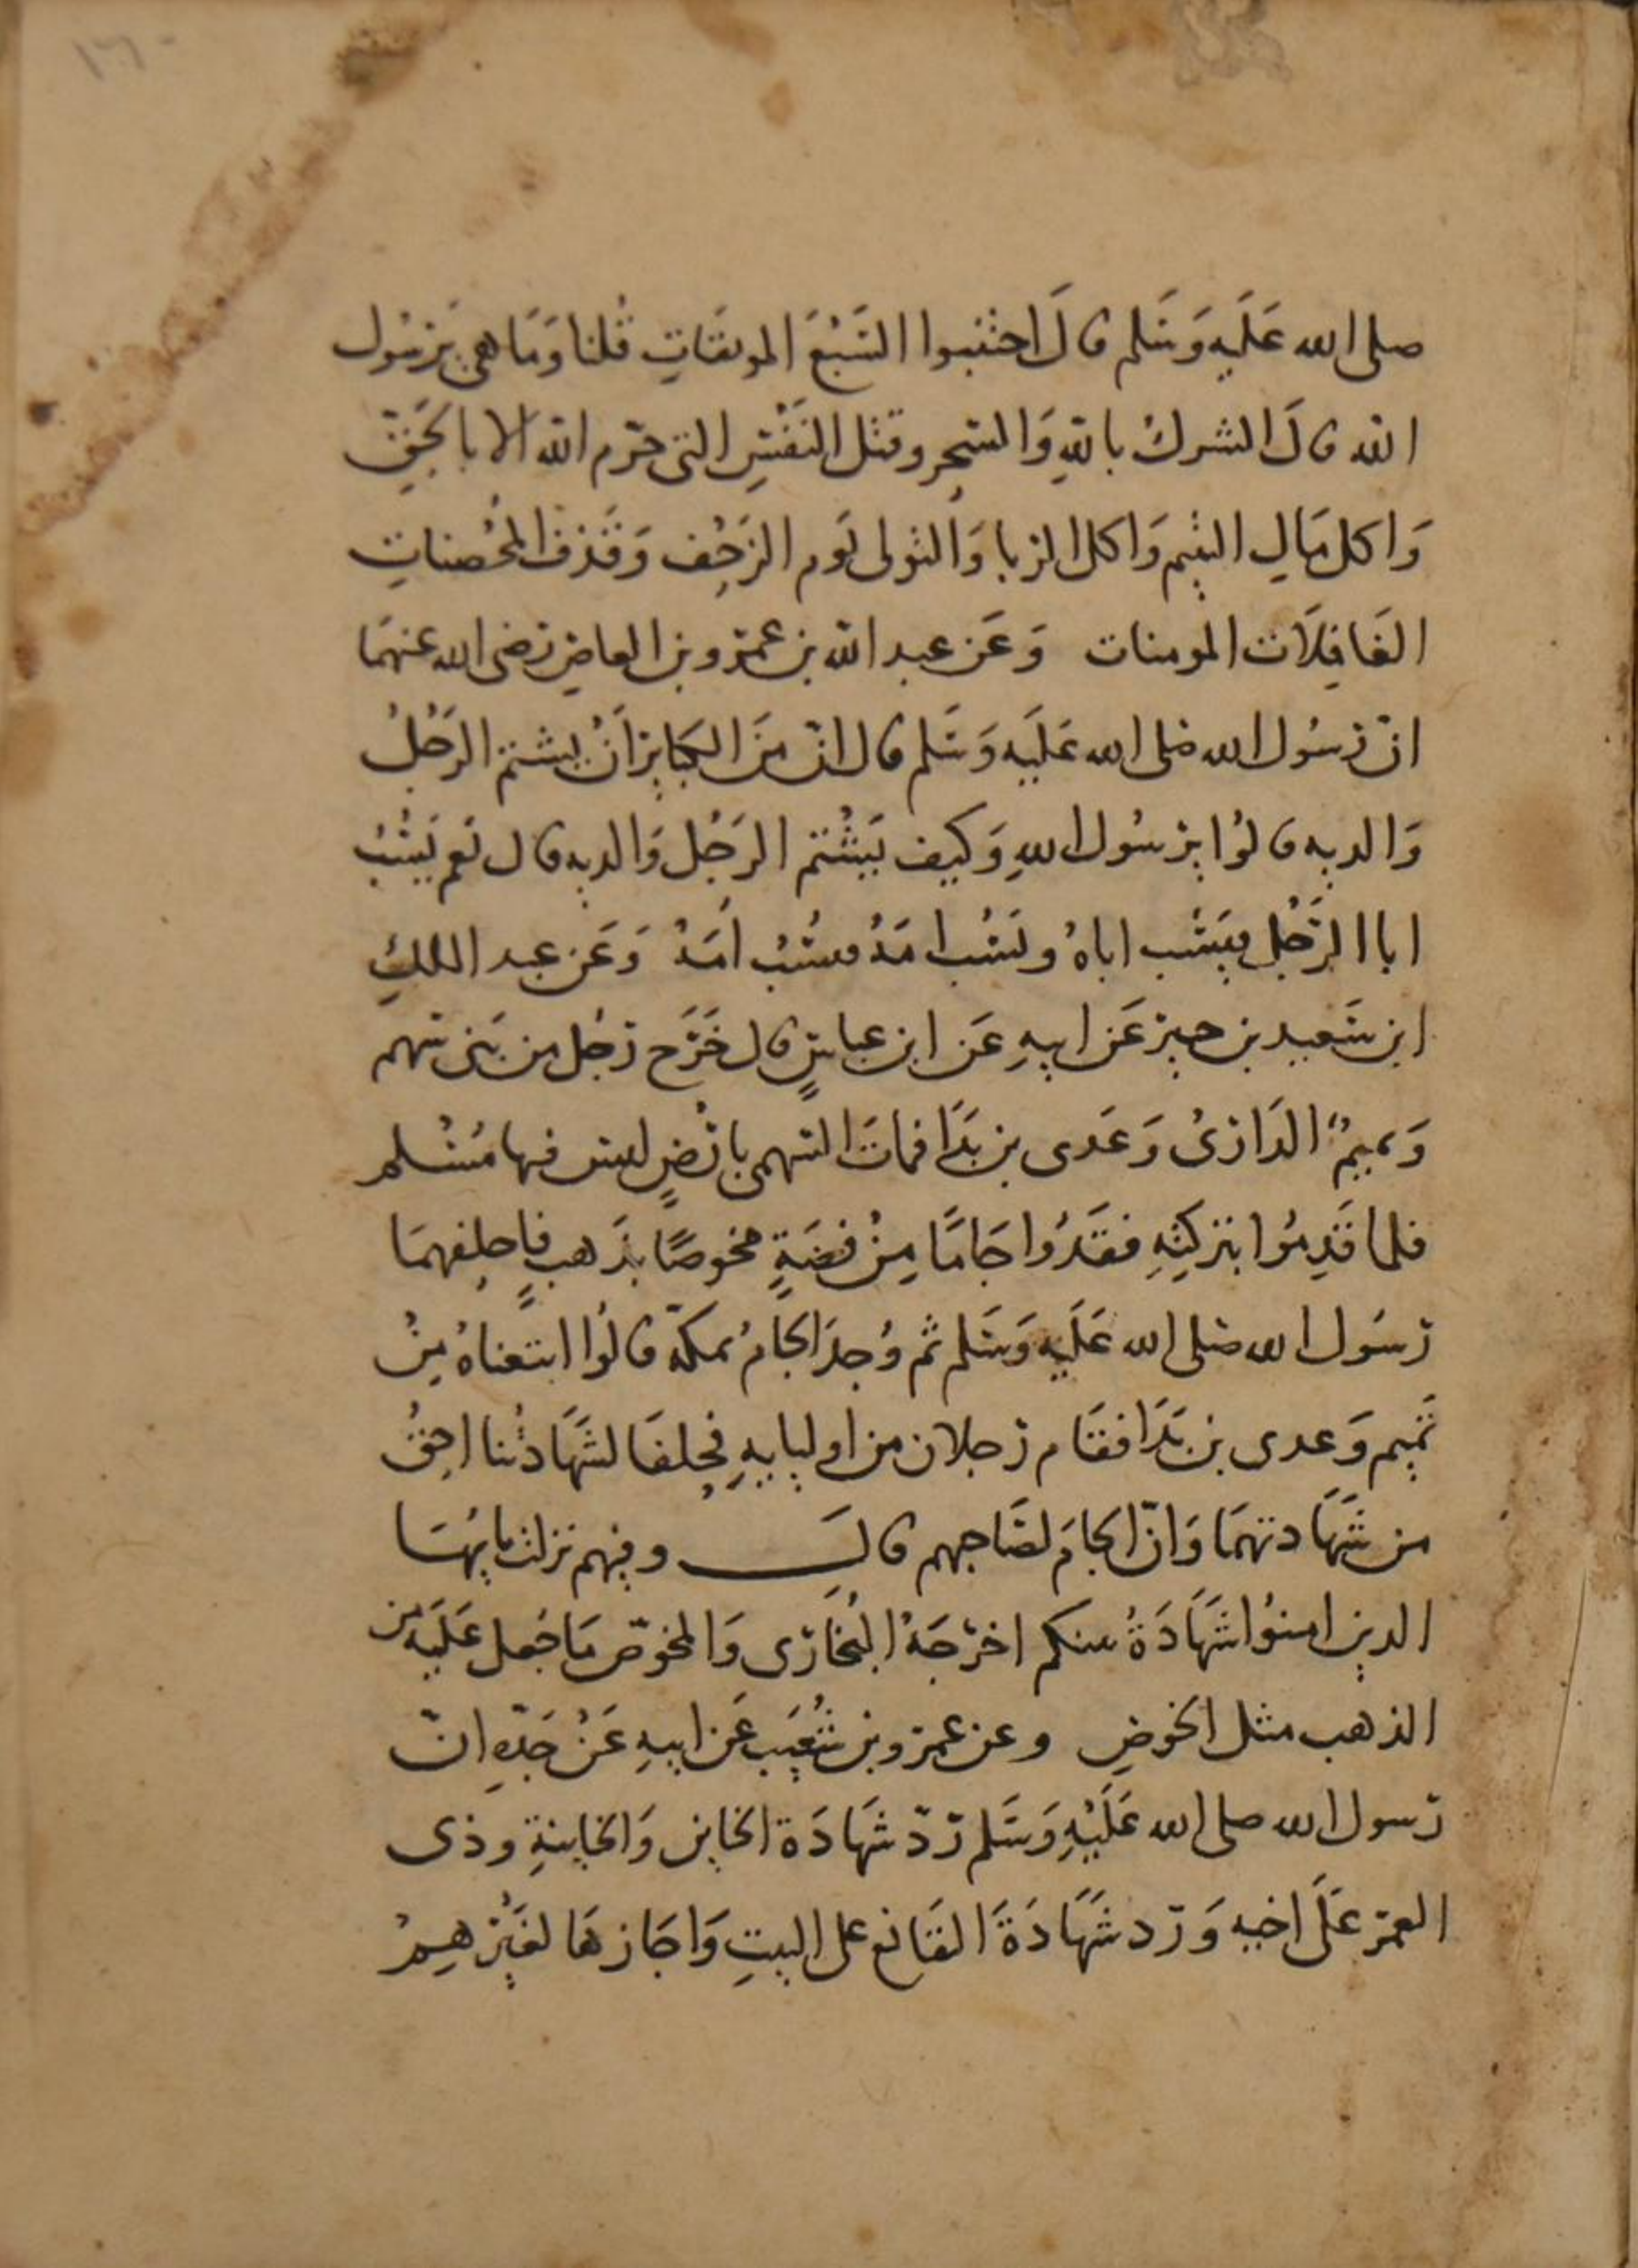 ١٦٠
صلى الله عَلَيه وَسَلم قالَ اجتنبوا السَبْعَ الموبقاتِ قُلنا وَمَا هى يَرسُول
الله قالَ الشرك باللهِ وَالسِحِر وقتل النَفْسِ التى حرّم الله الا بالحَقِّ
وَاكل مَالِ اليتيم وَاكل الربا وَالتولى يَوم الزَحْف وَقَذف المُحْصناتِ
الغَافِلَات المومنات وَعَن عبد الله بن عمرو بن العاصِ رضى الله عنهمَا
انّ رسُول الله صلى الله عَلَيه وَسَلم قال انّ مِنَ الكبَايِر اَنْ يشتم الرَجُلُ
وَالديه قالوُا يرسُول اللهِ وَكيف يَشْتم الرَجُل وَالديه قال نَعم يَسُبُ
ابا الرَجُل فيَسُب اباهُ ويَسُب امَهُ فيسُبُ اُمَهُ وَعَن عبد الملكِ
ابن سَعيد بن جبير عَن ابيهِ عَن ابن عباسٍ قال خَرَج رَجُل من بَنى سَهم
وَتميمٌ الدَارىُ وَعَدى بن بَدَا فماتَ السَهمى بارْضٍ ليس فيها مُسْلم
فلما قَدِمُوا بتركتِهِ فقَدُوا جَامًا مِنْ فِضَةٍ مخوصًا بذَهبٍ فاحلفهمَا
رسُول الله صلى الله عَلَيه وَسَلم ثم وُجِدَ الجَامُ بمكّة قالوُا ابتعناهُ مِنْ
تَميم وَعدى بن بَدَا فقَام رَجلان من اوليايهِ فحلفَا لشَهَادتُنا احقُ
من شَهَادتهمَا وَانّ الجَامَ لصَاحبهم قالَ وفيهم نزلت يايهَا
الذين امنوُا شَهَادَةُ بينكم اخرَجَهُ البُخَارى وَالمخوّص مَا جُعل عَلَيه من
الذهب مثل الخوصِ وعن عمرو بن شُعَيب عَن ابيهِ عَنْ جَدّهِ انّ
رَسول الله صلى الله عَلَيْهِ وَسَلم رَدّ شَهَادَة الخاين وَالخاينةِ وذى
الغمر عَلَى اخيه وَرَد شَهَادَةَ القَانع على البيتِ وَاجَازهَا لغَيْرهِمْ